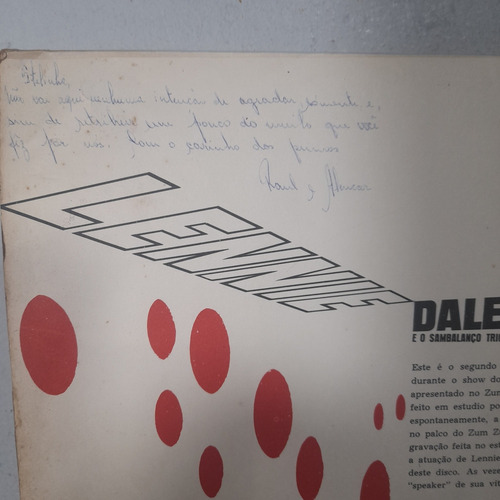 não vai aqui nenhuma intenção de agradar, somente e,
sim de retribuir um pouco do muito que você
fez por nós. Com o carinho dos primos
Raul e Alencar
LENNIE
DALE
E O SAMBALANÇO TRI
Este é o segundo
durante o show do
apresentado no Zum
feito em estudio po
espontaneamente, a
no palco do Zum Z
gravação feita no est
a atuação de Lennie
deste disco. As veze
"speaker" de sua vit